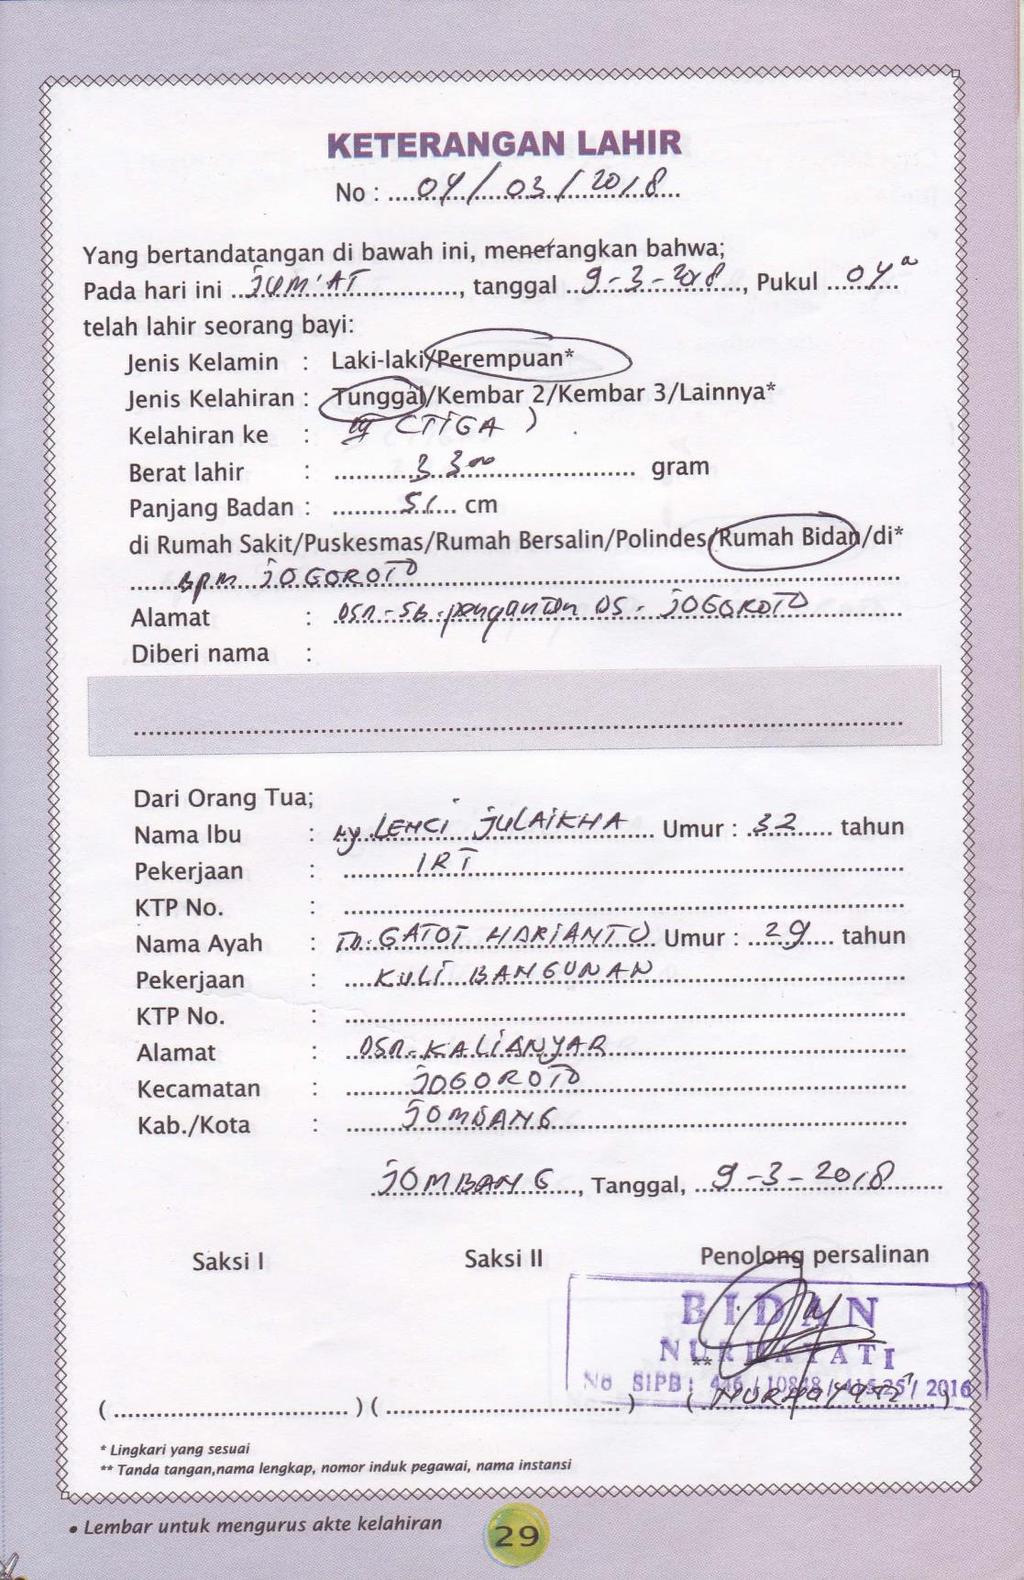 KETERANGAN LAHIR
No : 04/03/2018
Yang bertandatangan di bawah ini, menerangkan bahwa;
Pada hari ini JUM'AT, tanggal 9-3-2018, Pukul 04
telah lahir seorang bayi:
Jenis Kelamin : Laki-laki/Perempuan*
Jenis Kelahiran : Tunggal/Kembar 2/Kembar 3/Lainnya*
Kelahiran ke : (TIGA)
Berat lahir : 3300 gram
Panjang Badan : 51 cm
di Rumah Sakit/Puskesmas/Rumah Bersalin/Polindes/Rumah Bidan/di*
BPM JOGOROTO
Alamat : DSN. Sb. penganton DS. JOGOROTO
Diberi nama :
Dari Orang Tua;
Nama Ibu : Ny LENCI JULAIKHA Umur : 32 tahun
Pekerjaan : IRT
KTP No. :
Nama Ayah : Tn. GATOT HARIANTO Umur : 29 tahun
Pekerjaan : KULI BANGUNAN
KTP No. :
Alamat : DSN. KALIANYAR
Kecamatan : JOGOROTO
Kab./Kota : JOMBANG
JOMBANG, Tanggal, 9-3-2018
Saksi I Saksi II Penolong persalinan
BIDAN
NURHAYATI
No SIPB : 446 / 2016
( ) ( ) ** (NURHAYATI)
* Lingkari yang sesuai
** Tanda tangan,nama lengkap, nomor induk pegawai, nama instansi
• Lembar untuk mengurus akte kelahiran
29